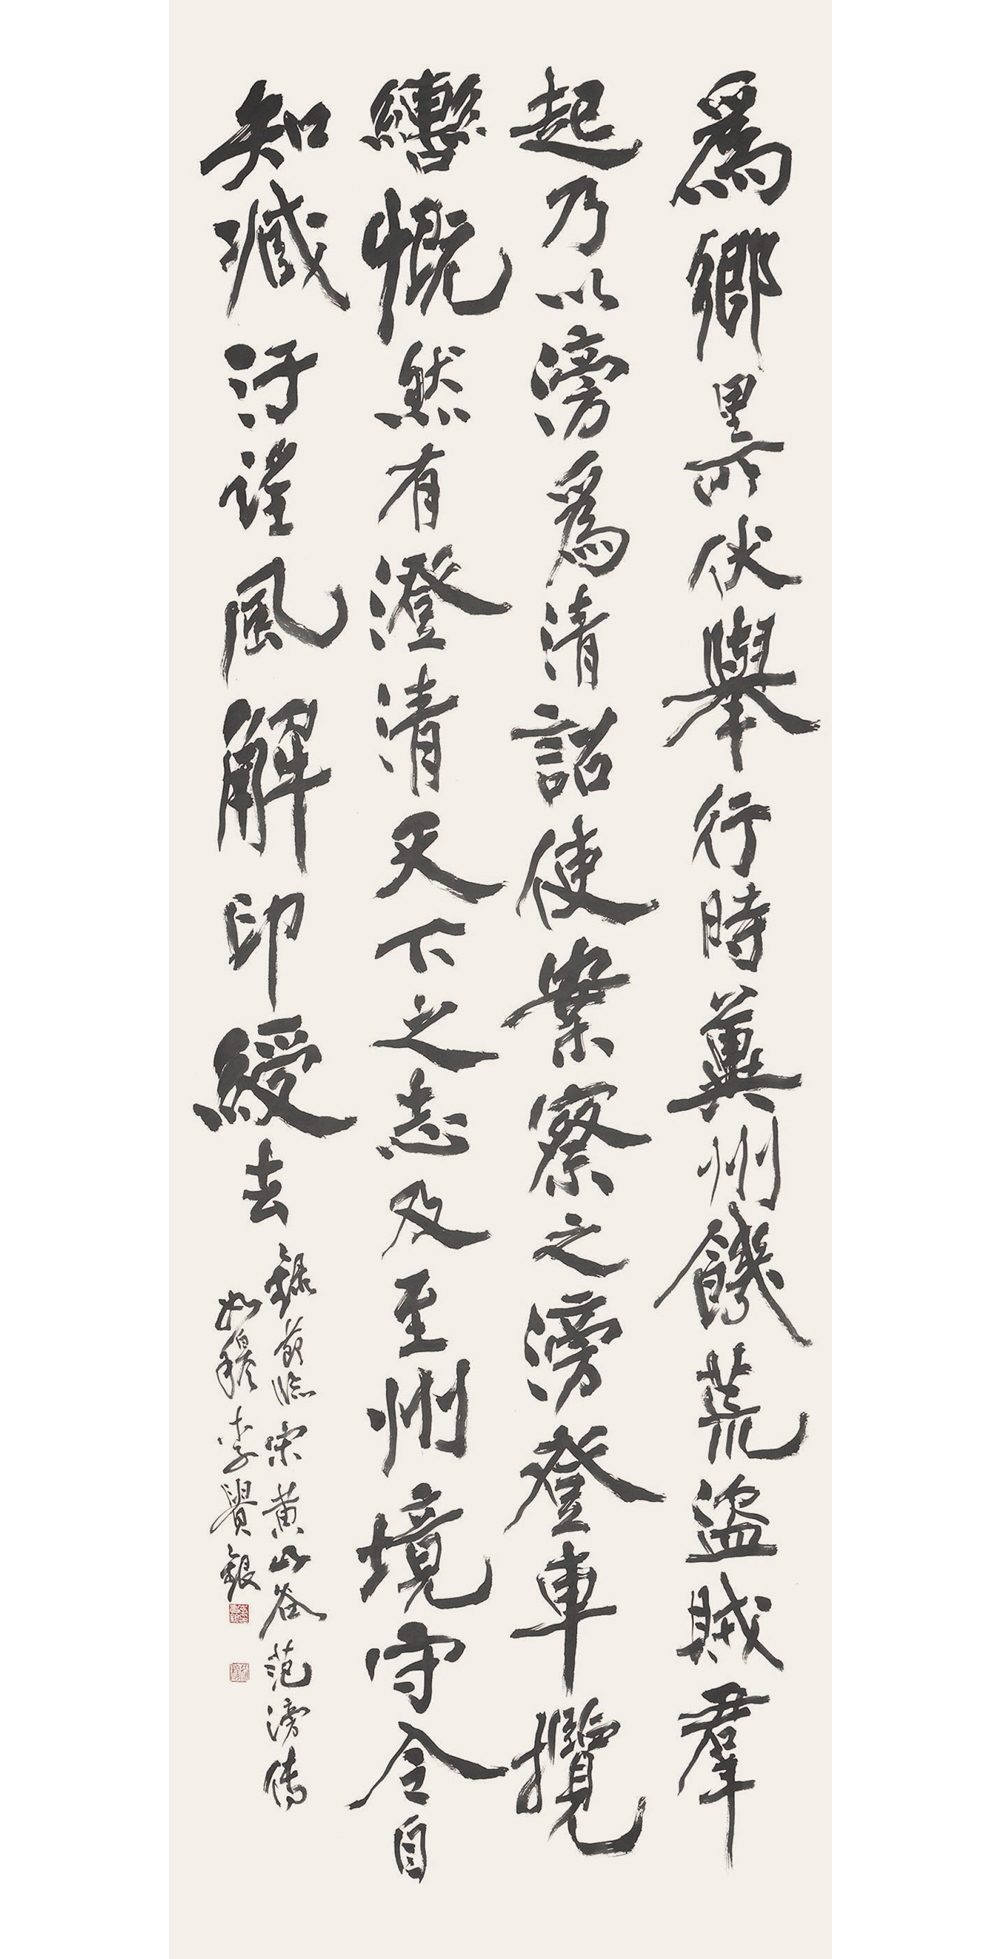 爲鄉里所伏舉行時冀州饑荒盜賊羣
起乃以滂爲清詔使案察之滂登車攬
轡慨然有澄清天下之志及至州境守令自
知臧汙望風解印綬去
錄節臨宋黄山谷范滂傳
如穆李貴銀